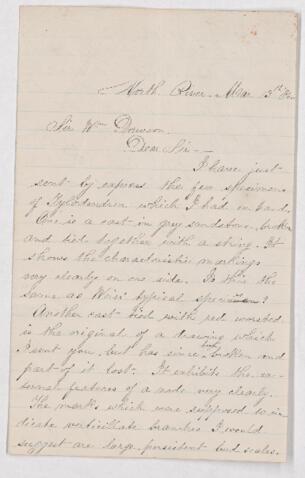 North River, Mar 3rd
Sir Wm Dawson.
Dear Sir,—
I have just
sent by express the few specimens
of Tylodendron which I had in hand.
One is a cast in grey sandstone, broken
and tied together with a string. It
shows the characteristic markings
very clearly on one side. Is this the
same as Weiss' typical specimen?
Another cast tied with red worsted
is the original of a drawing which
I sent you, but has since been broken and
part of it lost. It exhibits the ex-
ternal features of a node very clearly.
The marks which were supposed to in-
dicate verticillate branches I would
suggest are large persistent bud scales.